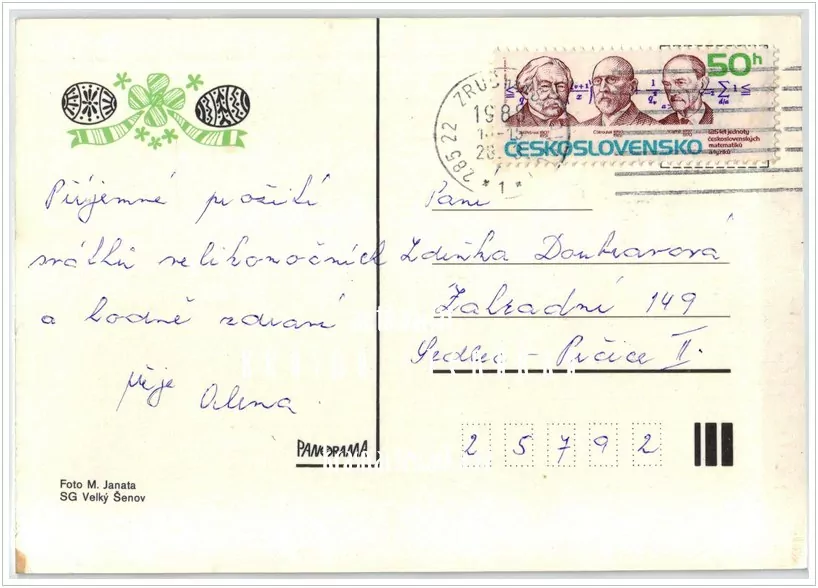 Příjemné prožití
svátků velikonočních
a hodně zdraví
přeje
Alena
PANORAMA
Foto M. Janata
SG Velký Šenov
285 22 ZRUČ
198
28.
* 1 *
50h
ČESKOSLOVENSKO
125 let jednoty
československých
matematiků
a fyziků
Paní
Zdeňka Doubravová
Zahradní 149
Sedlec - Prčice II.
25792